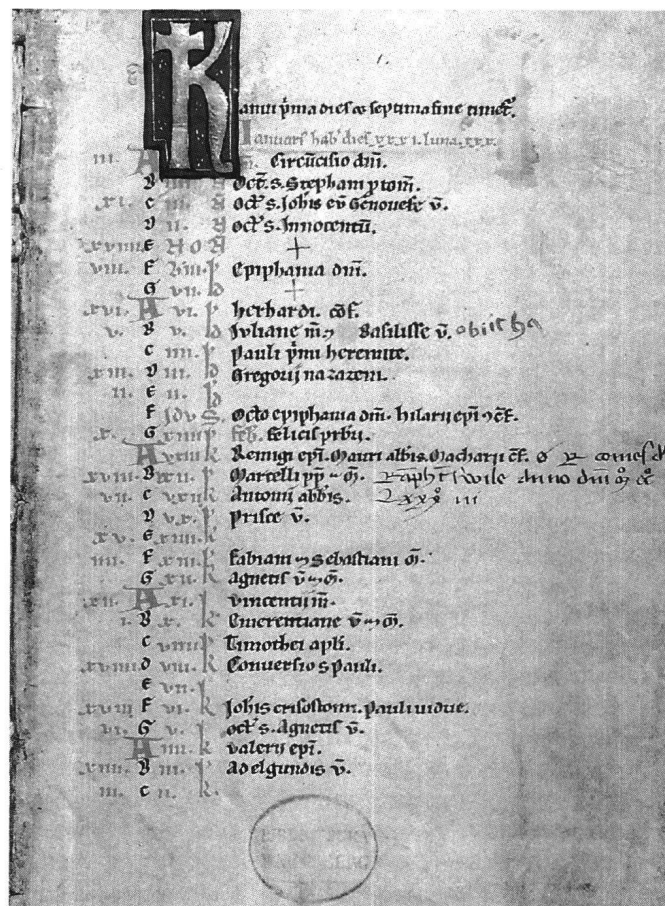 K
Januarii hab' dies xxxi. luna. xxx.
iii. A Circūcisio dm̄.
B iiii. Oct̄. s. Stephani
xi. C iii. Oct̄ s. Joh̄is Genovefe v̄.
D ii. Oct̄ s. Innocentū.
xviiii E NON +
viii. F viii. Epiphania dm̄.
G vii. +
xvi. A vi. herhardi. cōf.
v. B v. Juliane m̄ Basilisse v̄. obiit
C iiii. pauli pʼmi heremite.
xiii. D iii. Gregorij nazareni.
ii. E ii.
F Octō epiphania dm̄. hilarij ep̄i
x. G xviiii felicis
A xviii k Remigi ep̄i. Mauri abbis. Macharij cf̄. comes
xviii. B xvii. Marcelli pp̄ anno dm̄
vii. C xvii k Antonii abbis. Lxxx iii
D xv. Prisce v̄.
xv. E xiiii k
iiii. F xiii. k fabiani Sebastiani m̄.
G xii. k agnetis v̄ m̄.
xii. A xi. vincentii m̄.
i. B x. k Emerentiane v̄ m̄.
C viiii Timothei apl̄i.
xviiii d viii. k Conversio s Pauli.
E vii.
xvii F vi. k Joh̄is crisostomi. pauli vidue.
vi. G v. k oct̄ s. Agnetis v̄.
A iiii. k valerii ep̄i.
xiiii. B iii. Adelgundis v̄.
iii. C ii. k.